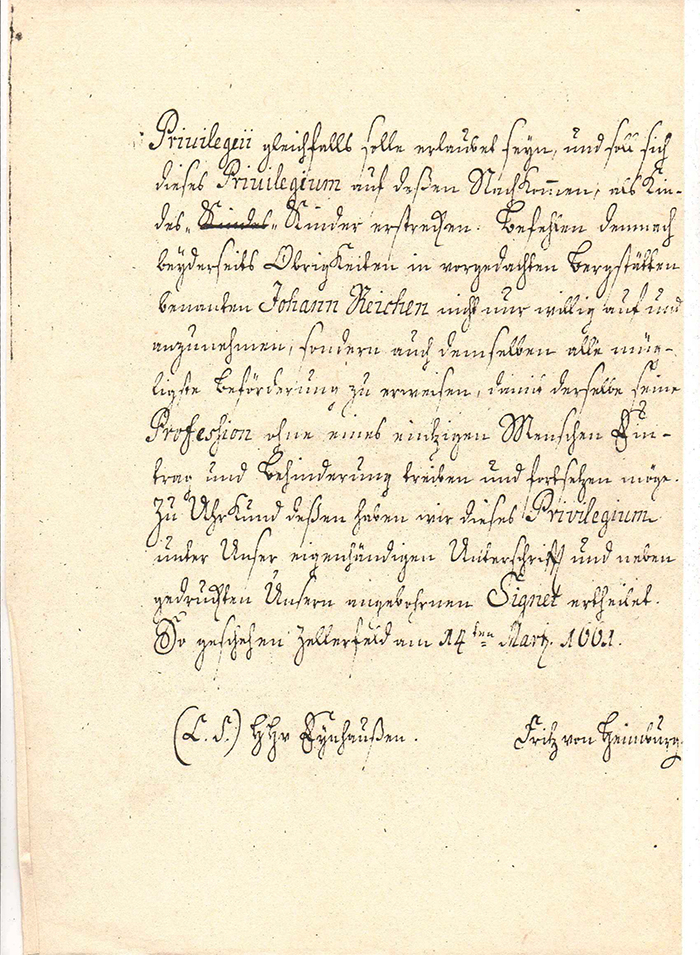 Privilegii gleichfalls solle erlaubet seyn, und soll sich
dieses Privilegium auf deßen Nachkom̄en, als Kin-
des-Kindes-Kinder erstrecken. Befehlen demnach
beyderseits Obrigkeiten in vorgedachten Bergstätten
benanten Johann Reichen nicht nur willig auf und
anzunehmen, sondern auch demselben alle müg-
ligste Beförderung zu erweisen, damit derselbe seine
Profeshion ohne eines eintzigen Menschen Ein-
trag und Behinderung treiben und fortsetzen möge.
Zu Uhrkund deßen haben wir dieses Privilegium
unter Unser eigenhändigen Unterschrifft und neben
gedruckten Unsern angebohrnen Signet ertheilet.
So geschehen Zellerfeld am 14ten Martz.
(L. S.) Eynhaußen. Fritz von Heimburg.